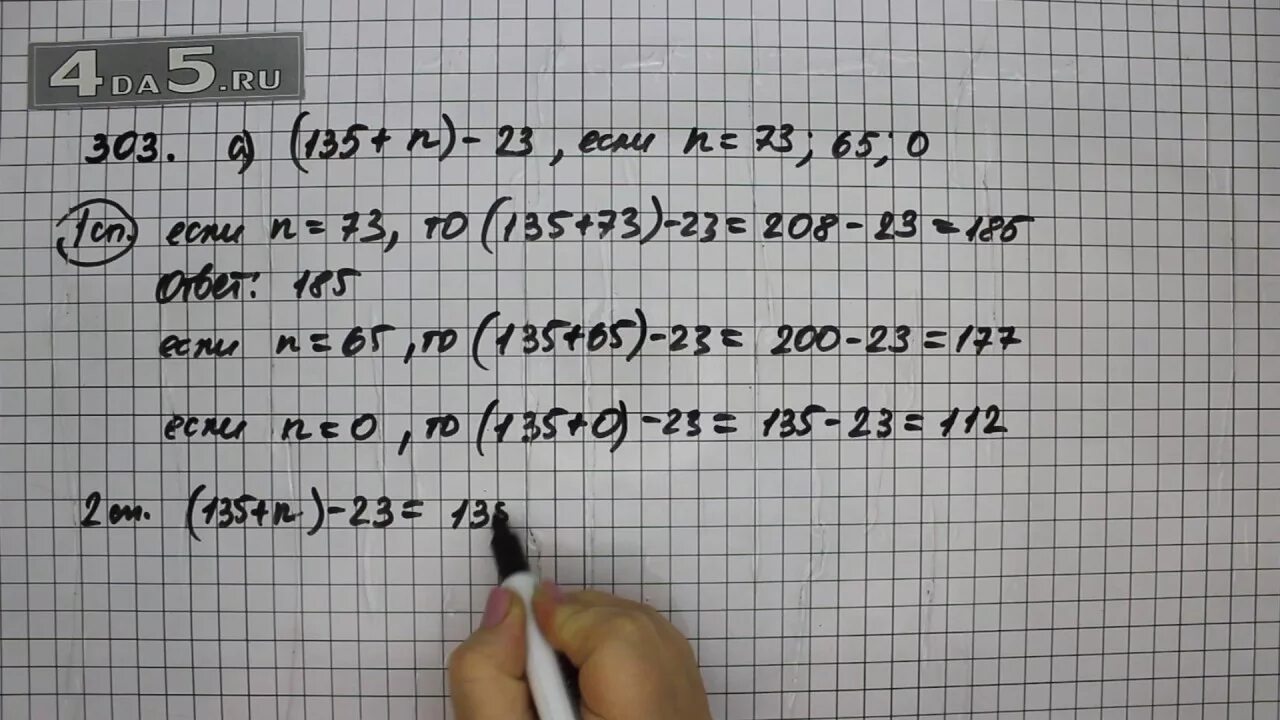 4DA5.RU
303. а) (135+ n)- 23, если n = 73; 65; 0
1сп. если n = 73, то (135+73)-23= 208-23=185
Ответ: 185
если n=65, то (135+65)-23= 200-23=177
если n=0, то (135+0)-23= 135-23=112
2сп. (135+n)-23= 135